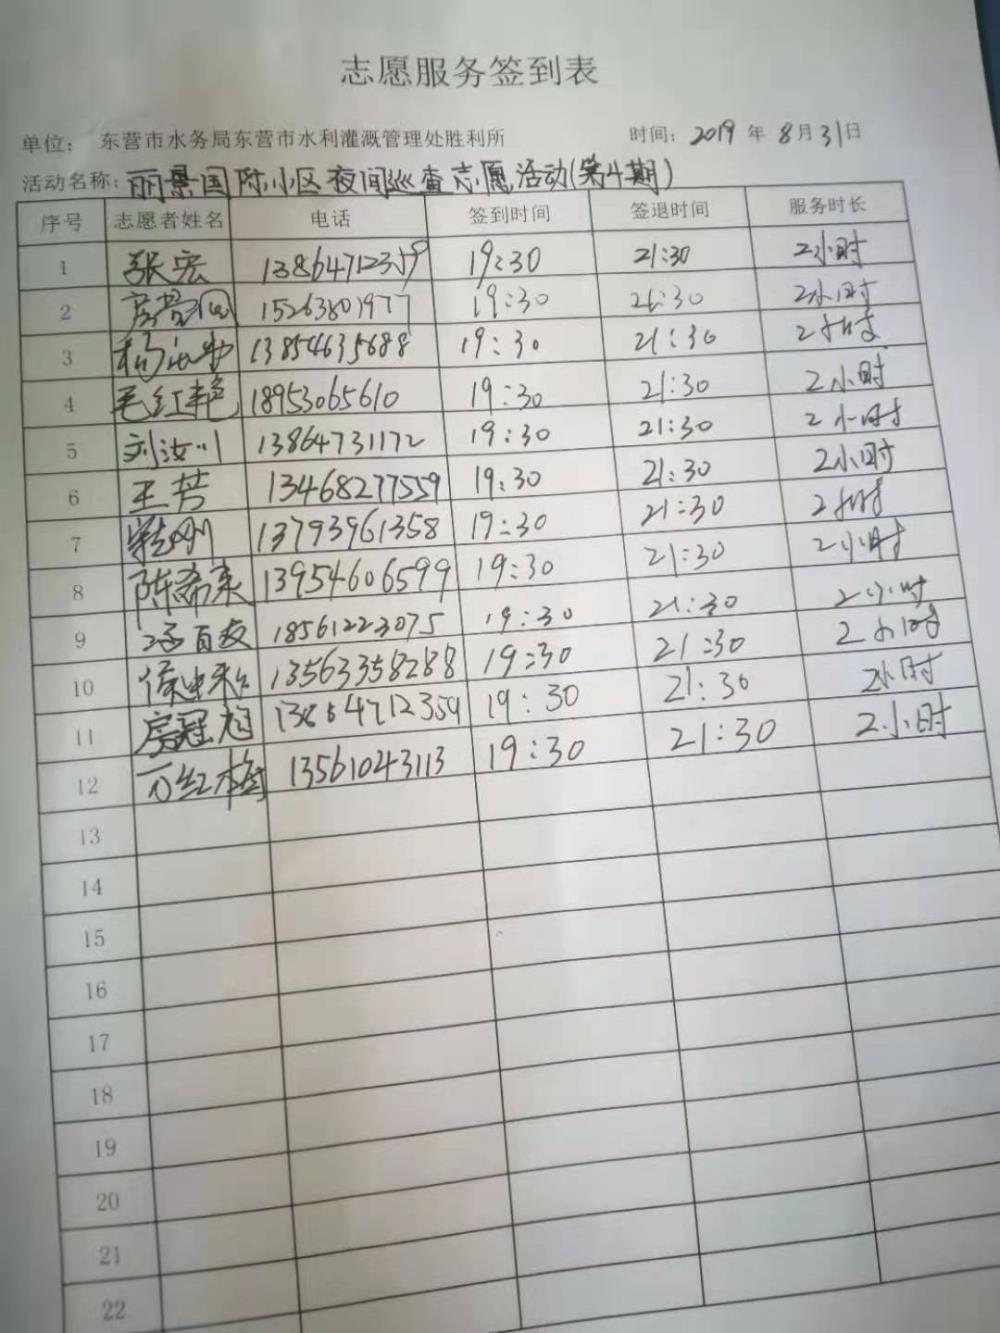 志愿服务签到表
单位： 东营市水务局东营市水利灌溉管理处胜利所 时间：2019年8月31日
活动名称：丽景国际小区夜间巡查志愿活动(第4期)
序号 志愿者姓名 电话 签到时间 签退时间 服务时长
1 张宏 19:30 21:30 2小时
2 15263801977 19:30 21:30 2小时
3 13854635688 19:30 21:30 2小时
4 毛红艳 18953065610 19:30 21:30 2小时
5 刘汝川 13864731172 19:30 21:30 2小时
6 王芳 13468277559 19:30 21:30 2小时
7 13793961358 19:30 21:30 2小时
8 陈希来 13954606599 19:30 21:30 2小时
9 18561223075 19:30 21:30 2小时
10 13563358288 19:30 21:30 2小时
11 房冠旭 13864712359 19:30 21:30 2小时
12 万红梅 13561043113 19:30 21:30 2小时
13
14
15
16
17
18
19
20
21
22